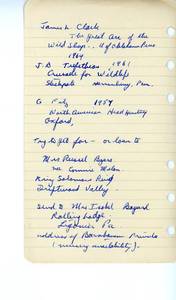 James L. Clark
The Great Arc of the
Wild Sheep. U of Oklahoma Press
1964
J.B. Trefethen, 1961
Crusade for Wildlife
Stackpole Harrisburg, Penn.
G 1959
North American Head Hunting
Oxford,
Try to get for — or loan to
Mrs Russell Byers
Connie
King Solomon Road
Driftwood Valley.
Send Mrs Isabel Bayard
Rolling Ledge
Ligonier Pa
address of Barnbaum
(nursery availability).